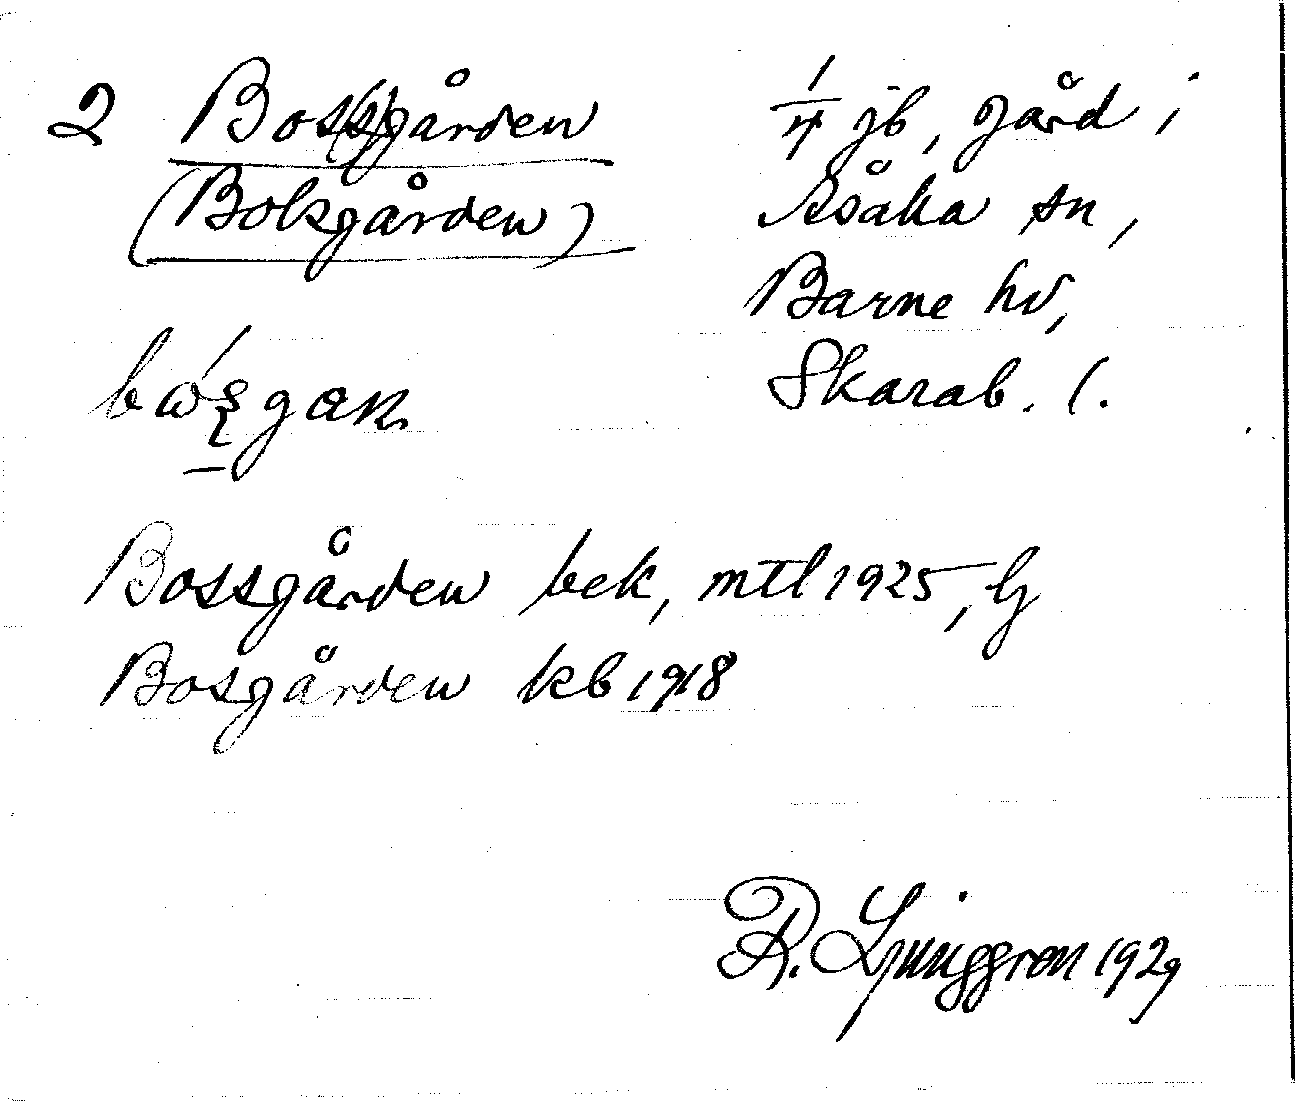 2 Bos(s)gården
(Boksgården)
1/4 jb, gård i
Åsaka sn,
Barne hd,
Skarab. l.
Bossgården bek, mtl 1925, Lj
Bosgården kb 1918
R. Ljunggren 1929